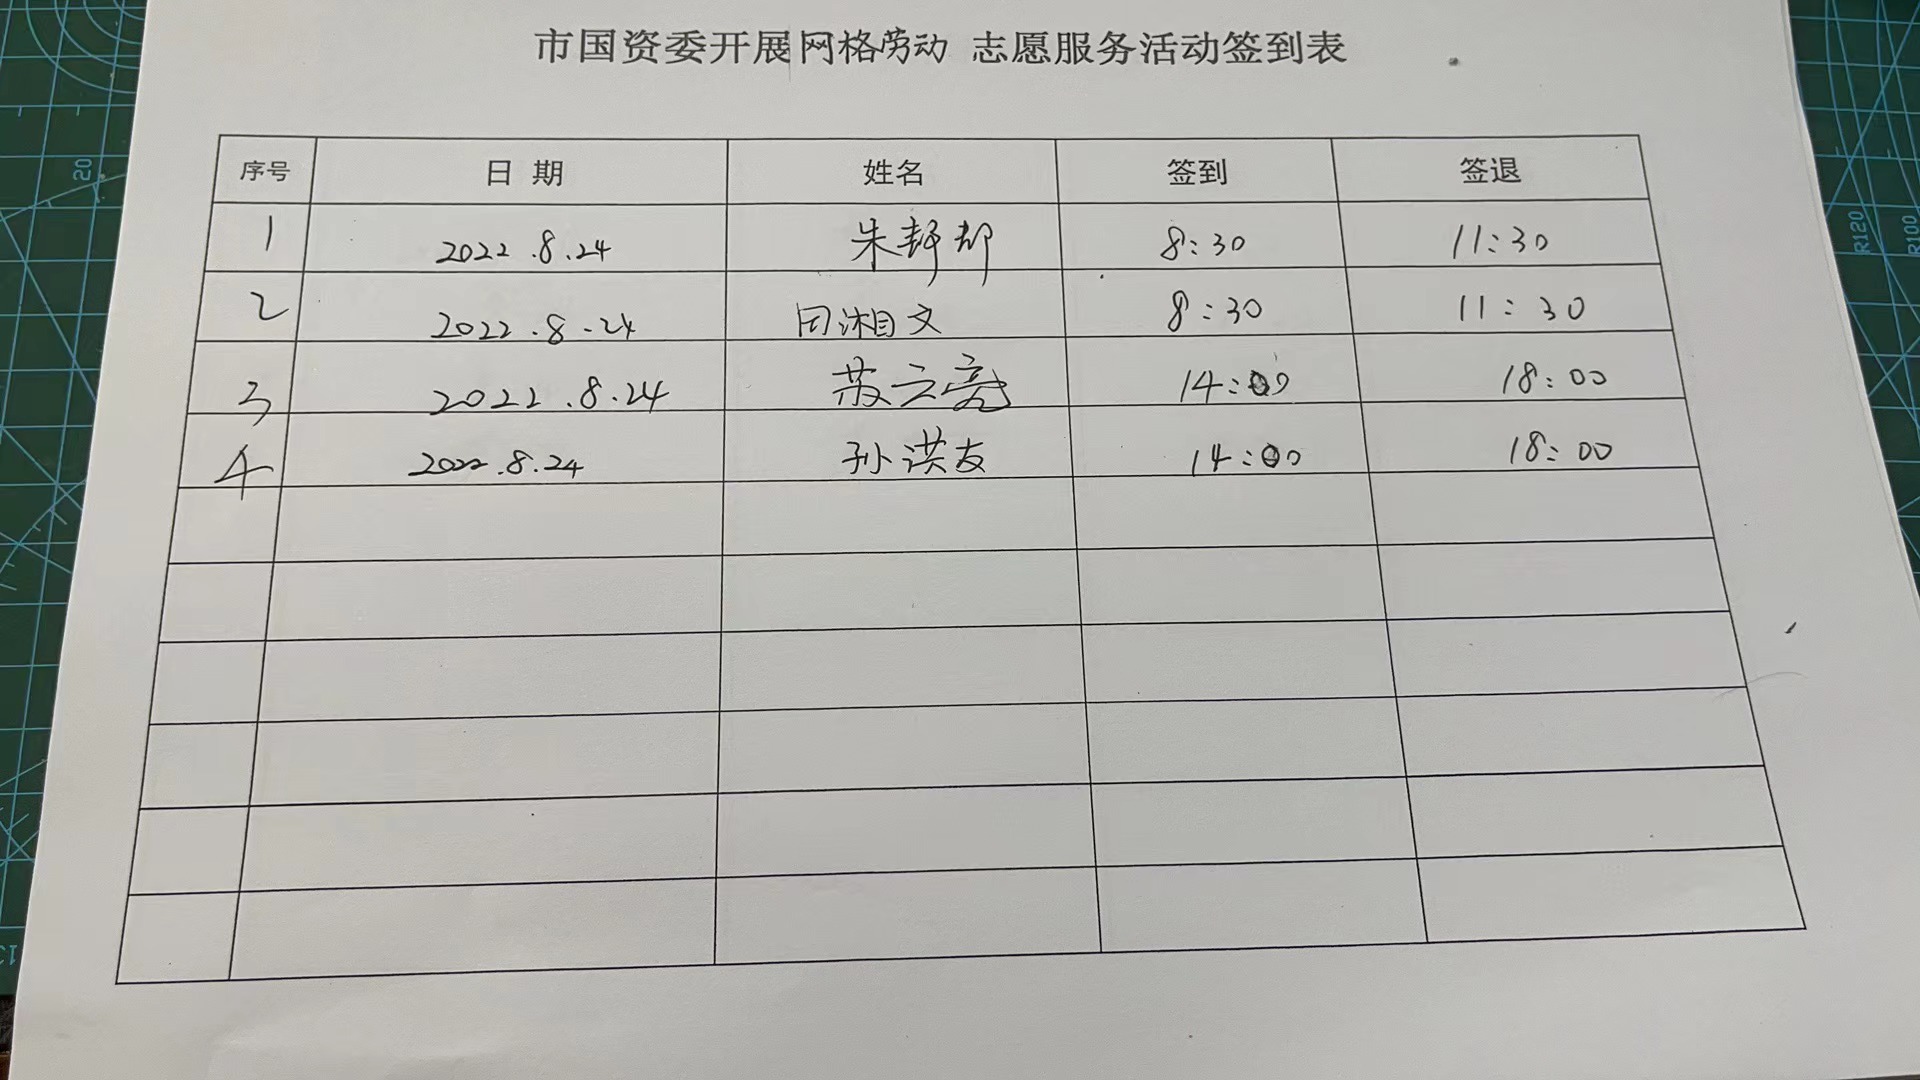 市国资委开展网格劳动 志愿服务活动签到表
序号 日期 姓名 签到 签退
1 2022.8.24 朱 8:30 11:30
2 2022.8.24 田湘文 8:30 11:30
3 2022.8.24 苏云亮 14:00 18:00
4 2022.8.24 孙洪友 14:00 18:00
20
R120
R100
13